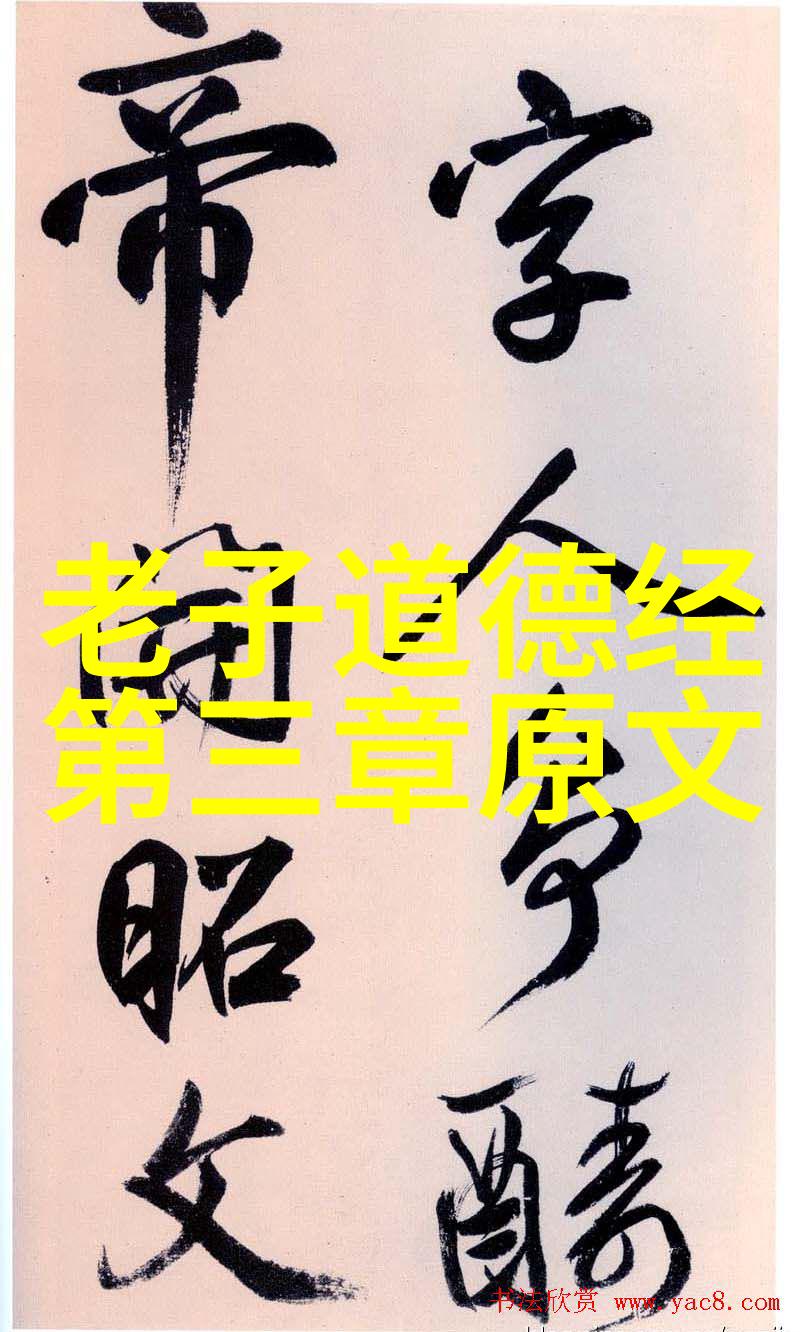 字人争醻
帝昭文
老子道德经
第三章原文
书法欣赏 www.yac8.com